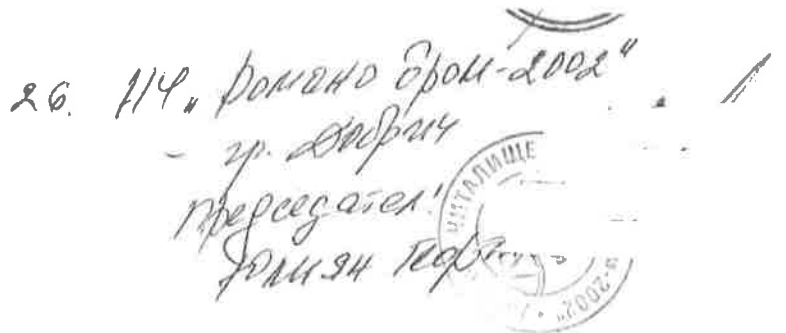 26. НЧ „Романо дром-2002"
- гр. Добрич
Председател:
Юлиян
ЧИТАЛИЩЕ
-2002"